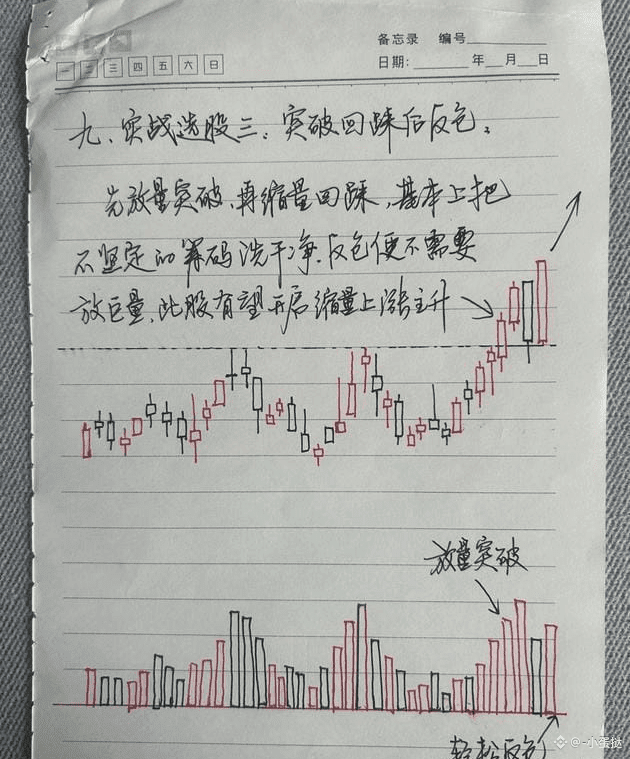 备忘录 编号
一 二 三 四 五 六 日
日期: 年 月 日
九、实战选股三：突破回踩后反包。
先放量突破，再缩量回踩，基本上把
不坚定的筹码洗干净，反包便不需要
放巨量，此股有望开启缩量上涨主升
放量突破
轻松反包
-小蛋挞